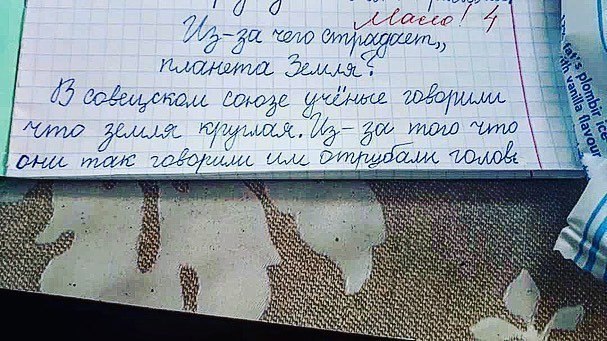 Мало! 4
Из-за чего страдает,,
планета Земля?
В совецском союзе учёные говорили
что земля круглая. Из-за того что
они так говорили им отрубали головы
tat's plombir ice
with vanilla flavour